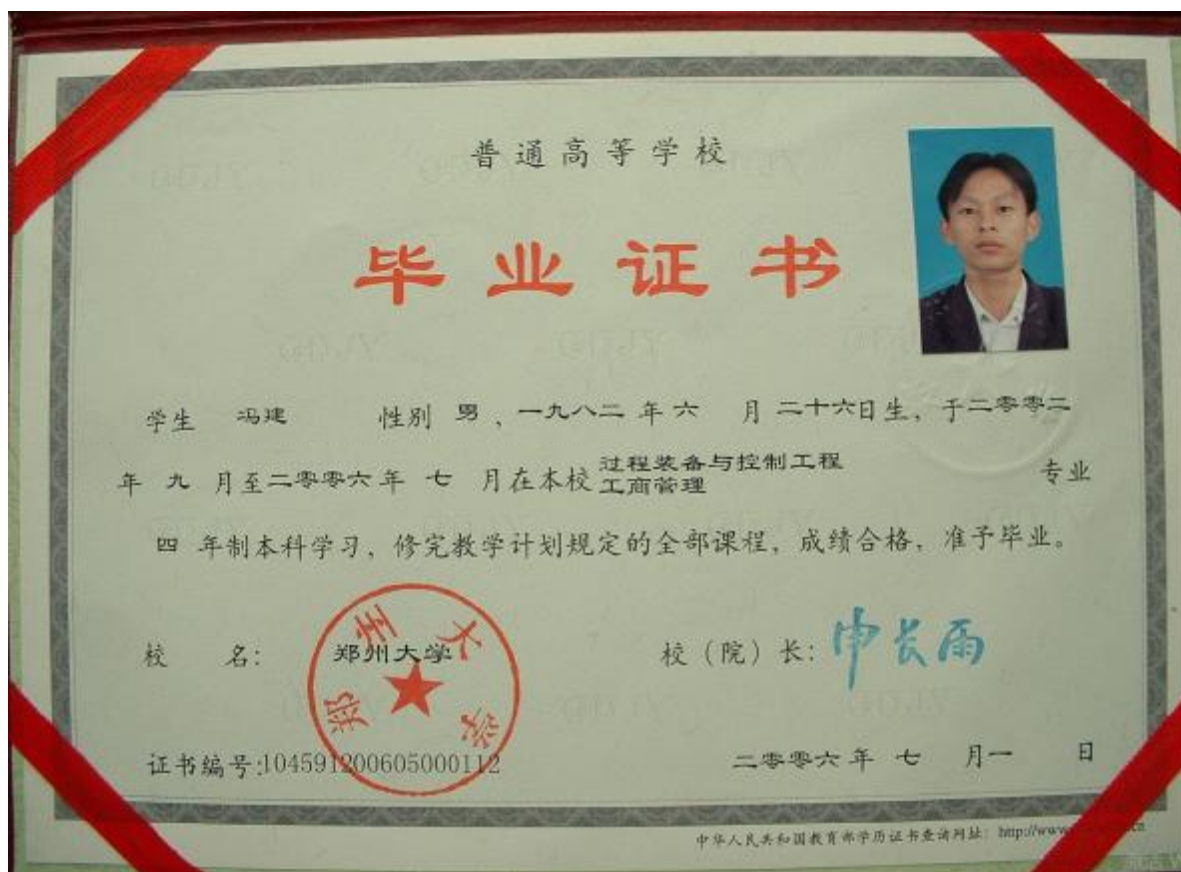 普通高等学校
毕业证书
学生 冯建 性别 男、一九八二年六 月二十六日生, 于二零零二
年 九 月至二零零六年 七 月在本校 过程装备与控制工程 专业
工商管理
四 年制本科学习, 修完教学计划规定的全部课程, 成绩合格, 准予毕业。
校 名: 郑州大学 校（院）长: 申长雨
郑州大学
证书编号:104591200605000112 二零零六年 七 月一 日
中华人民共和国教育部学历证书查询网址: http://www